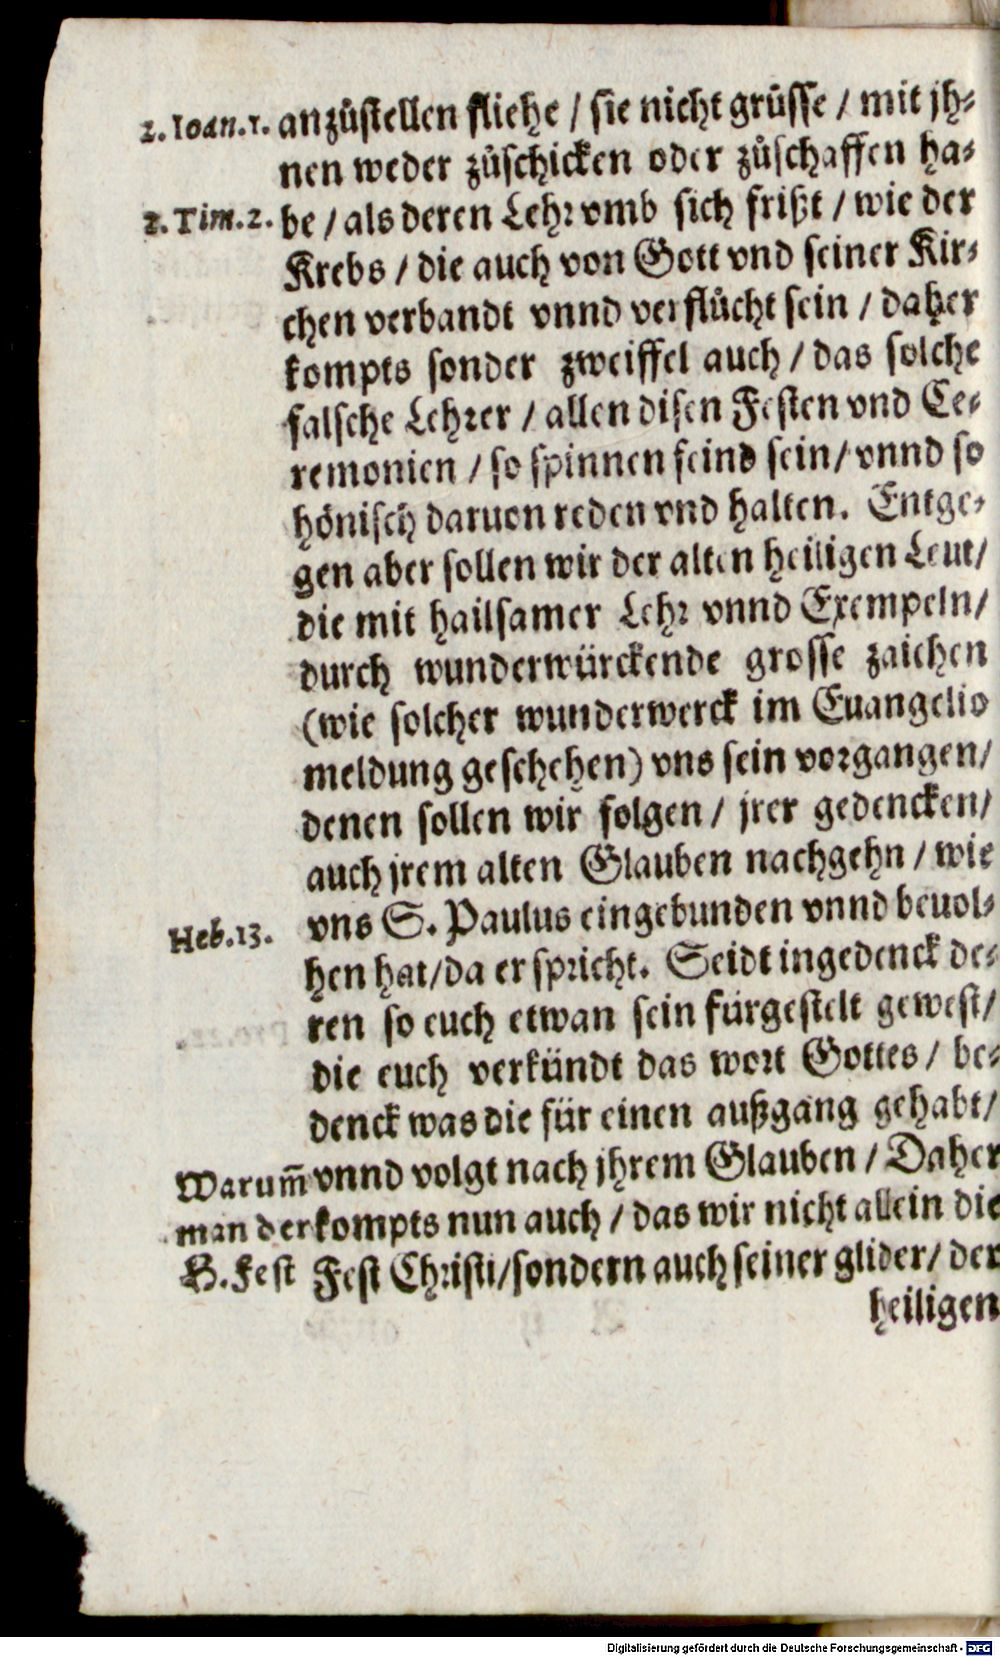 2. Ioan. 1. anzůstellen fliehe / sie nicht grüsse / mit jh⸗
nen weder zůschicken oder zůschaffen ha⸗
2. Tim. 2. be / als deren Lehr vmb sich frißt / wie der
Krebs / die auch von Gott vnd seiner Kir⸗
chen verbandt vnnd verflůcht sein / daher
kompts sonder zweiffel auch / das solche
falsche Lehrer / allen disen Festen vnd Ce⸗
remonien / so spinnen feind sein / vnnd so
hönisch daruon reden vnd halten. Entge⸗
gen aber sollen wir der alten heiligen Leut /
die mit hailsamer Lehr vnnd Exempeln /
durch wunderwürckende grosse zaichen
(wie solcher wunderwerck im Euangelio
meldung geschehen) vns sein vorgangen /
denen sollen wir folgen / jrer gedencken /
auch jrem alten Glauben nachgehn / wie
Heb. 13. vns S. Paulus eingebunden vnnd beuol⸗
hen hat / da er spricht. Seidt ingedenck de⸗
ren so euch etwan sein fürgestelt gewest /
die euch verkündt das wort Gottes / be⸗
denck was die für einen außgang gehabt /
Warum̄ vnnd volgt nach jhrem Glauben / Daher
man der kompts nun auch / das wir nicht allein die
H. Fest Fest Christi / sondern auch seiner glider / der
heiligen
Digitalisierung gefördert durch die Deutsche Forschungsgemeinschaft - DFG